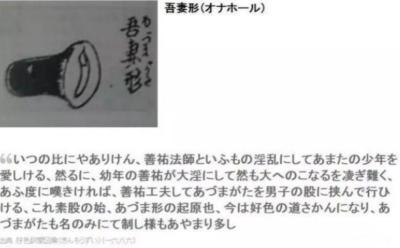 吾妻形（オナホール）
あづまがた
吾妻形
いつの比にやありけん、善祐法師といふもの淫乱にしてあまたの少年を
愛しける、然るに、幼年の善祐が大淫にして然も大へのこなるを凌ぎ難く、
あふ度に嘆きければ、善祐工夫してあづまがたを男子の股に挟んで行ひ
ける、これ素股の始、あづま形の起原也、今は好色の道さかんになり、あ
づまがたも名のみにて制し様もあやまり多し
出典